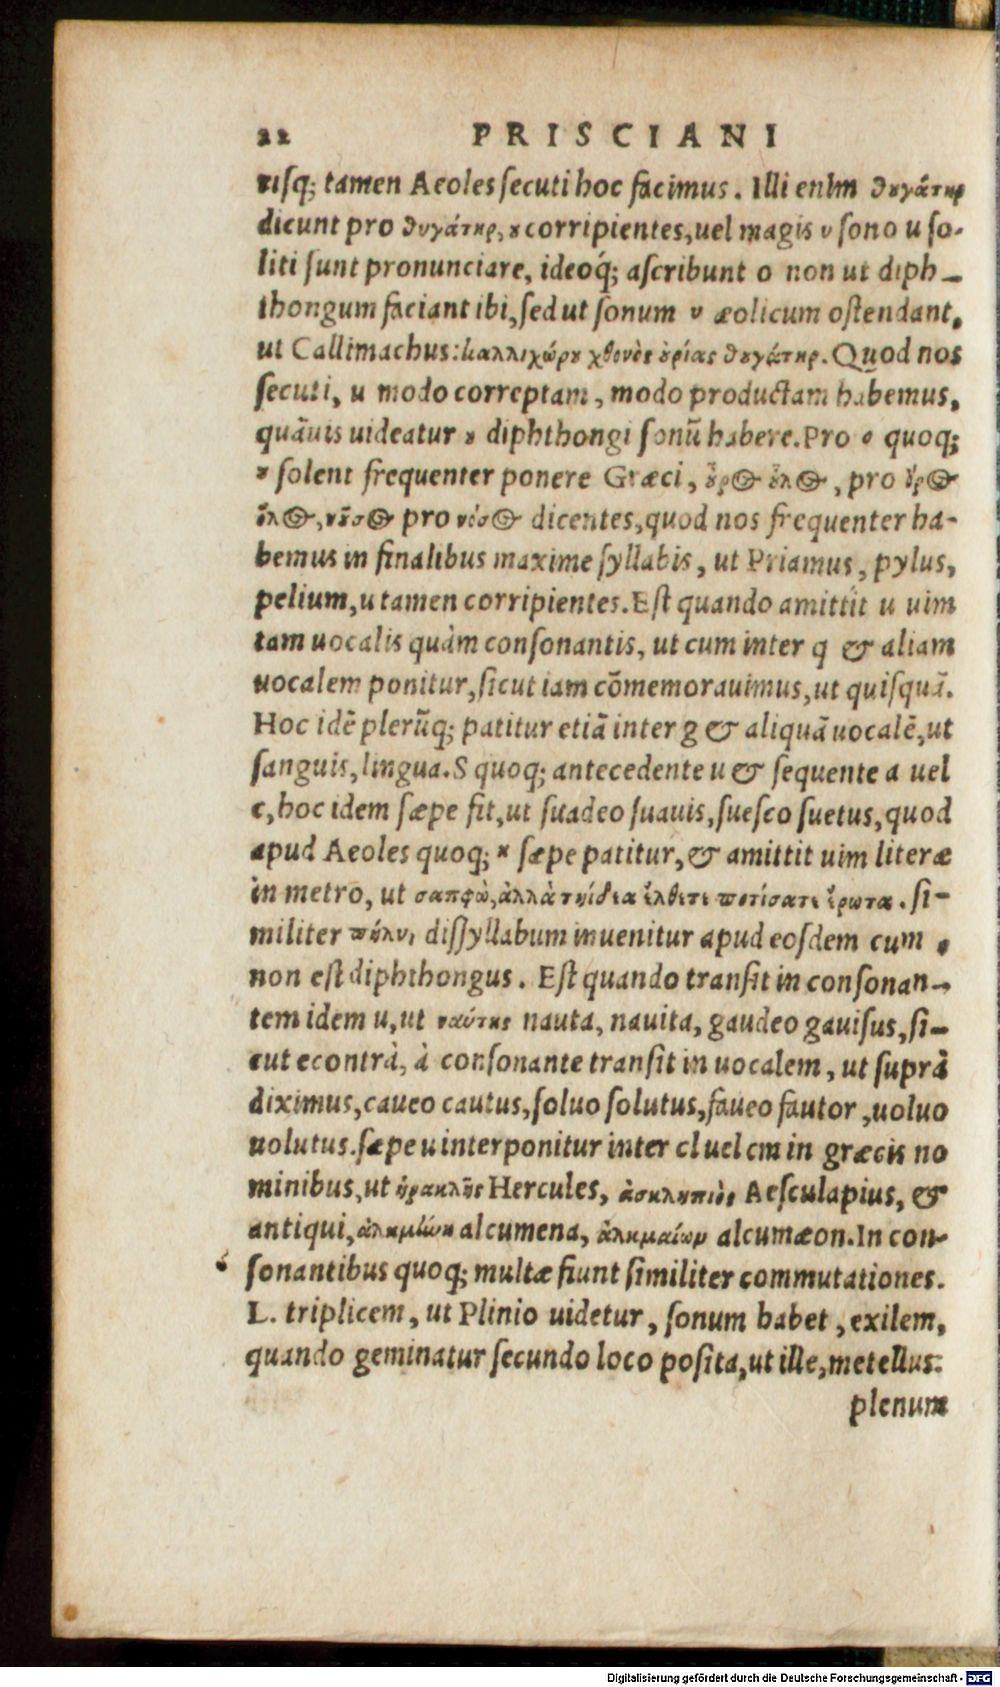 22 PRISCIANI
tisq; tamen Aeoles secuti hoc facimus. Illi enIm ϑουγάτηρ
dicunt pro ϑυγάτηρ, ου corripientes, uel magis υ sono u so-
liti sunt pronunciare, ideoq́; ascribunt o non ut diph-
thongum faciant ibi, sed ut sonum υ æolicum ostendant,
ut Callimachus: καλλιχώρου χθονὸς οὐρίας ϑουγάτηρ. Quod nos
secuti, u modo correptam, modo productam habemus,
quāuis uideatur ου diphthongi sonū habere. Pro ο quoq;
ου solent frequenter ponere Græci, οὖρος οὖλος, pro ὄρος
ὄλος, νοῦσος pro νόσος dicentes, quod nos frequenter ha-
bemus in finalibus maxime syllabis, ut Priamus, pylus,
pelium, u tamen corripientes. Est quando amittit u uim
tam uocalis quàm consonantis, ut cum inter q & aliam
uocalem ponitur, sicut iam cōmemorauimus, ut quisquā.
Hoc idē plerūq; patitur etiā inter g & aliquā uocalē, ut
sanguis, lingua. S quoq; antecedente u & sequente a uel
e, hoc idem sæpe fit, ut suadeo suauis, suesco suetus, quod
apud Aeoles quoq; υ sæpe patitur, & amittit uim literæ
in metro, ut σαπφὼ, ἀλλὰ τυίδια ἔλθετε ποτίσατε ἔρωτα. si-
militer dissyllabum inuenitur apud eosdem cum
non est diphthongus. Est quando transit in consonan-
tem idem u, ut ναύτης nauta, nauita, gaudeo gauisus, si-
cut econtrà, à consonante transit in uocalem, ut suprà
diximus, caueo cautus, soluo solutus, faueo fautor, uoluo
uolutus. sæpe u interponitur inter cl uel cm in græcis no
minibus, ut ἡρακλῆς Hercules, ἀσκληπιὸς Aesculapius, &
antiqui, ἀλκμήνη alcumena, ἀλκμαίων alcumæon. In con-
sonantibus quoq; multæ fiunt similiter commutationes.
L. triplicem, ut Plinio uidetur, sonum habet, exilem,
quando geminatur secundo loco posita, ut ille, metellus:
plenum
Digitalisierung gefördert durch die Deutsche Forschungsgemeinschaft - DFG